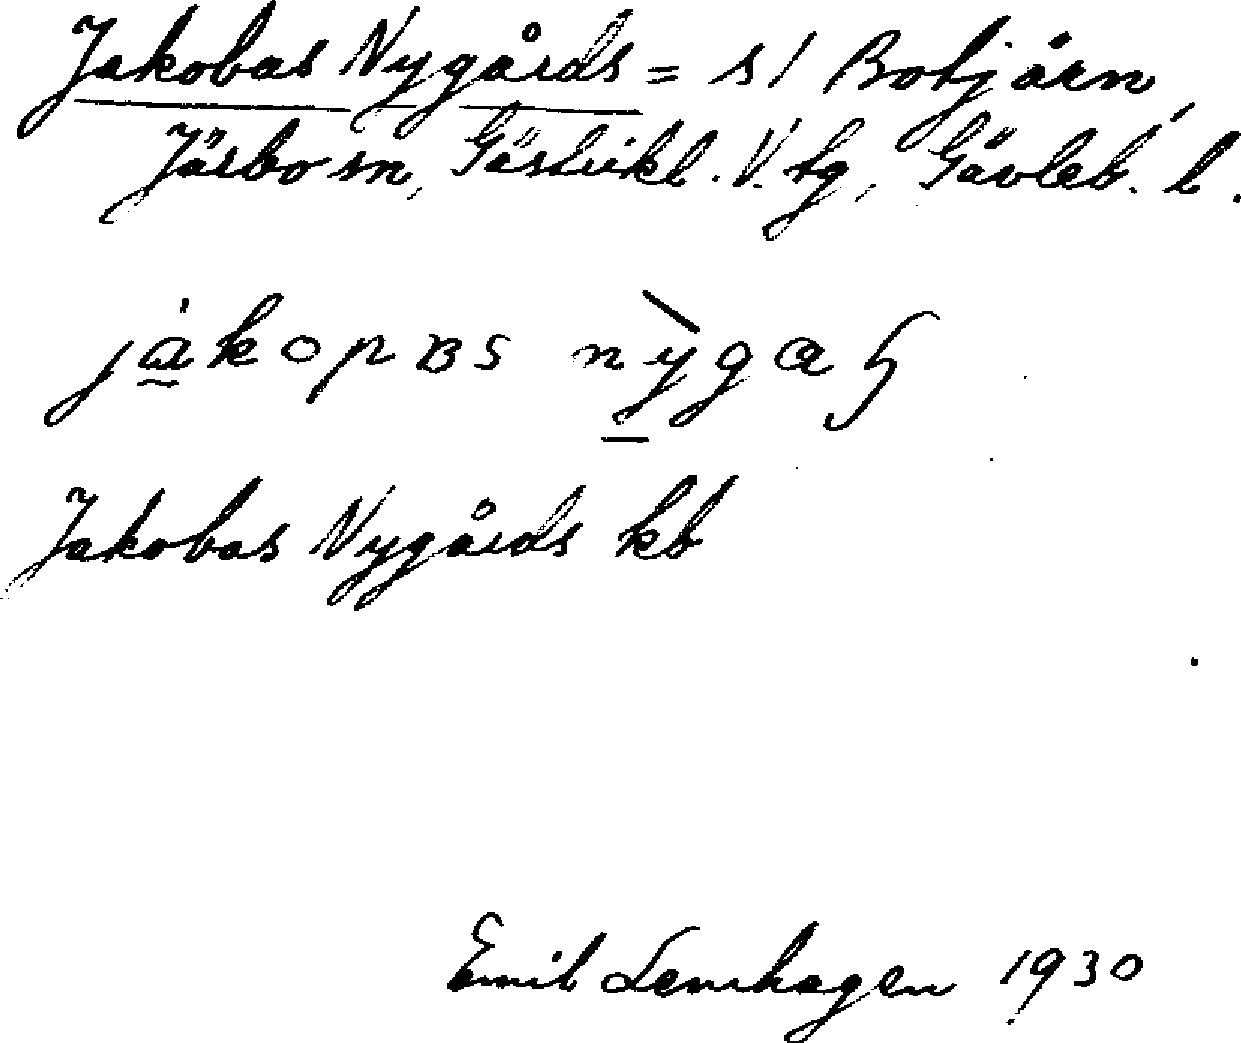 Jakobas Nygårds = s/ Botjärn,
Järbo sn, Gästrikl. V. tg, Gävleb. l.
jákopɐs nỳgaʂ
Jakobas Nygårds kb
Emil Lenhagen 1930